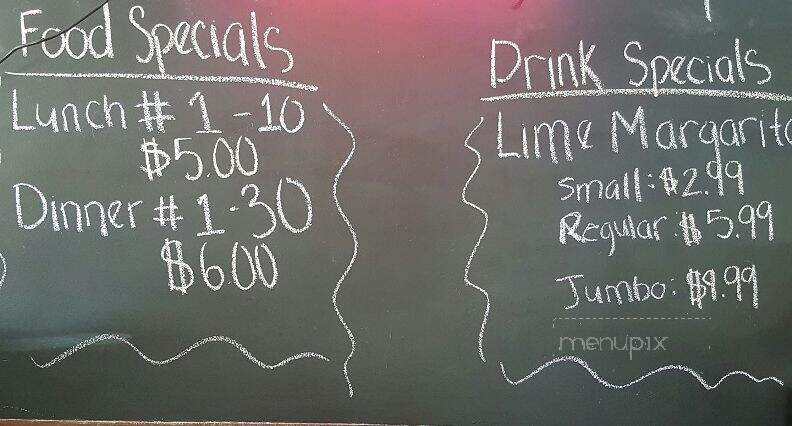 Food Specials
Lunch # 1 - 10
$5.00
Dinner # 1-30
$6.00
Drink Specials
Lime Margarita
Small: $2.99
Regular: $5.99
Jumbo: $9.99
menupix